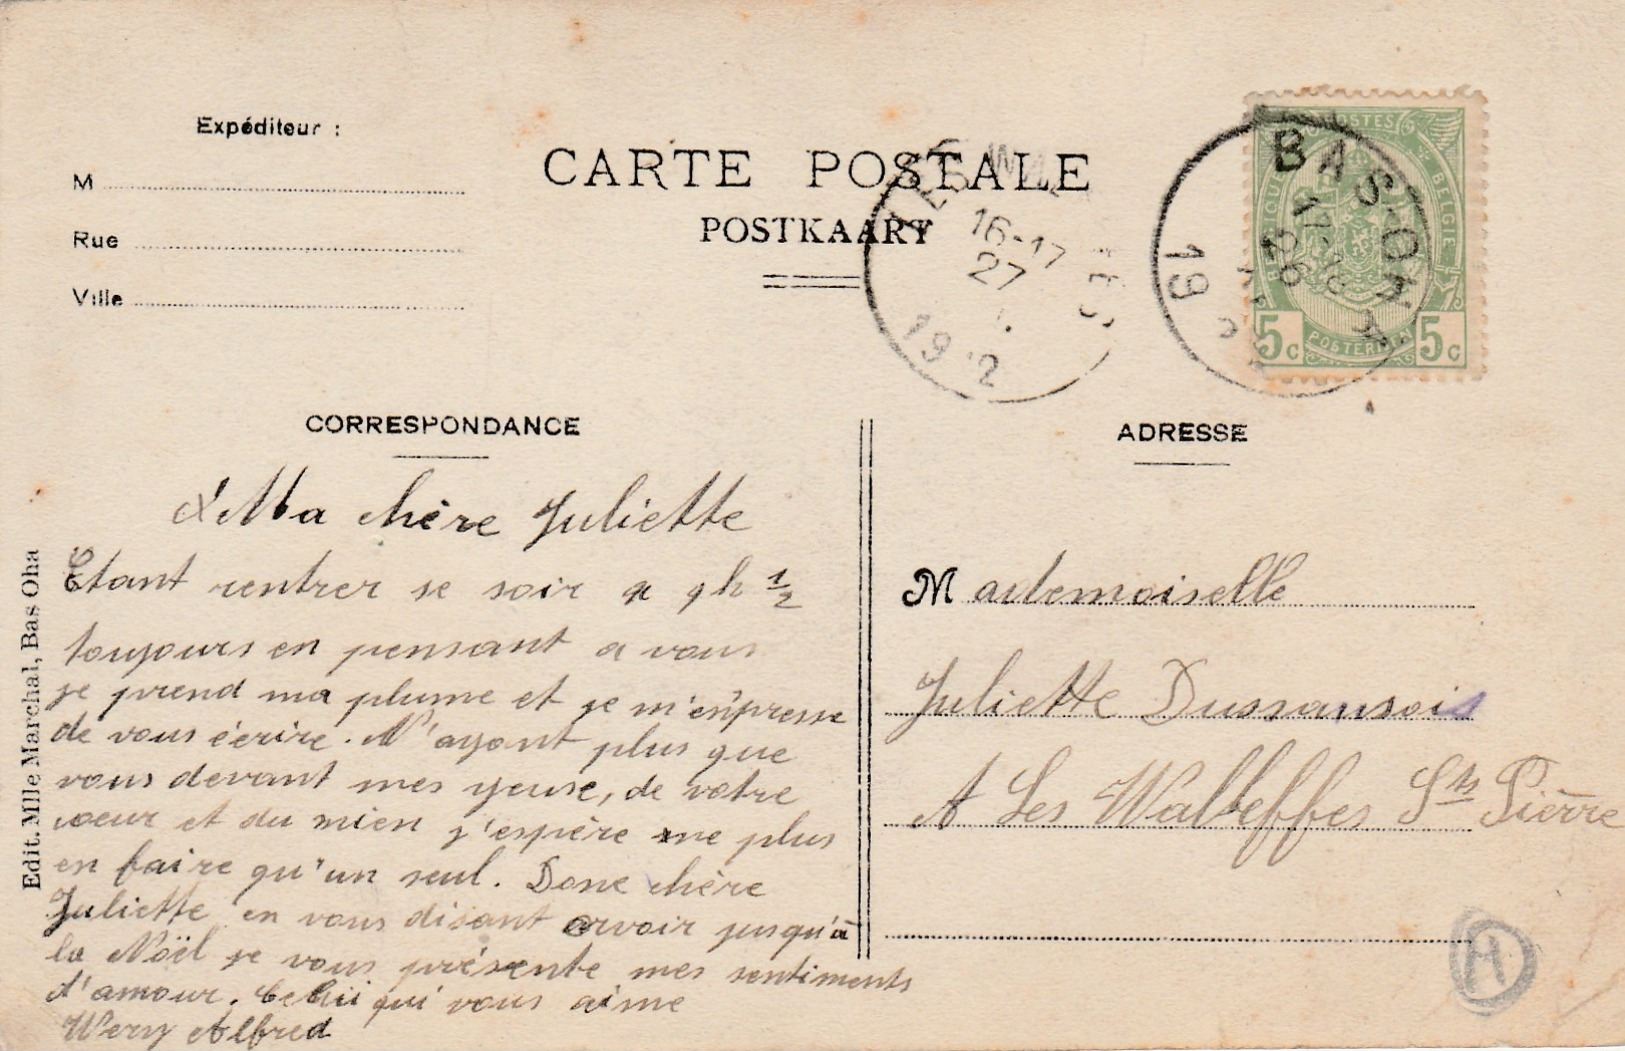 Expéditeur :
M
Rue
Ville
CARTE POSTALE
POSTKAART
16-17
27
19 2
BAS-OHA
19
POSTES
BELGIQUE
BELGIE
POSTERIJEN
5c 5c
CORRESPONDANCE
ADRESSE
Ma chère Juliette
Etant rentrer se soir a 9h 1/2
toujours en pensant a vous
je prend ma plume et je m'enpresse
de vous écrire. N'ayant plus que
vous devant mes yeuse, de votre
coeur et du mien j'espère ne plus
en faire qu'un seul. Donc chère
Juliette en vous disant arvoir jusqu'à
la Noël je vous présente mes sentiments
d'amour. Celui qui vous aime
Wery Alfred
Mademoiselle
Juliette Dussansois
A Les Walleffes Sts Pièrre
H
Edit. Mlle Marchal, Bas Oha